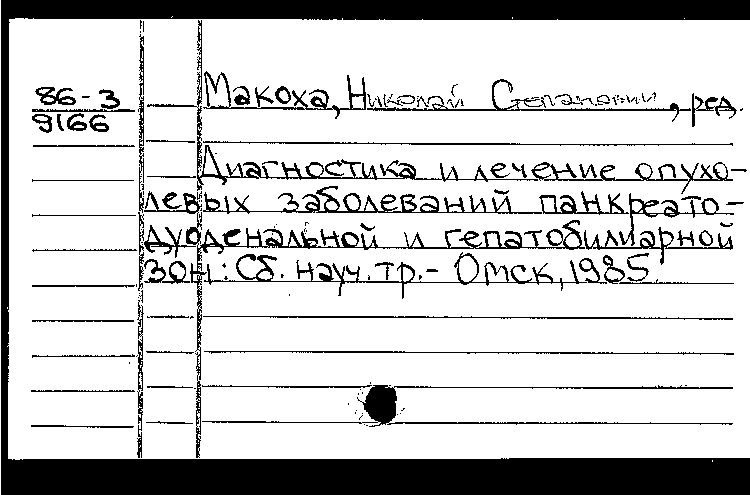 86-3
9166
Макоха, Николай Степанович, ред.
Диагностика и лечение опухо-
левых заболеваний панкреато-
дуоденальной и гепатобилиарной
зон: Сб. науч. тр.- Омск, 1985.